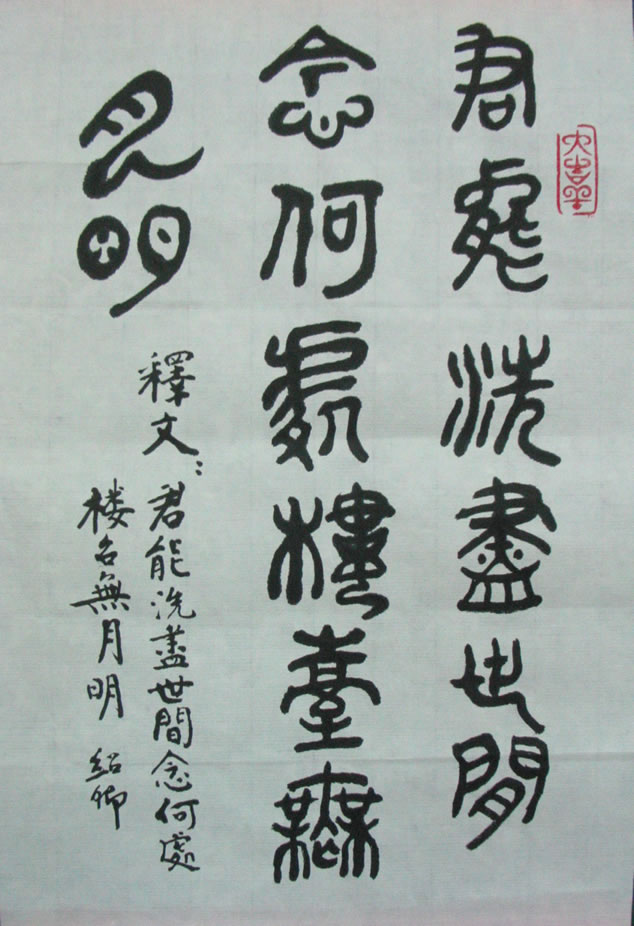 君能洗盡世間
念何處樓臺無
月明
釋文：君能洗盡世間念何處
楼台無月明 紹卿